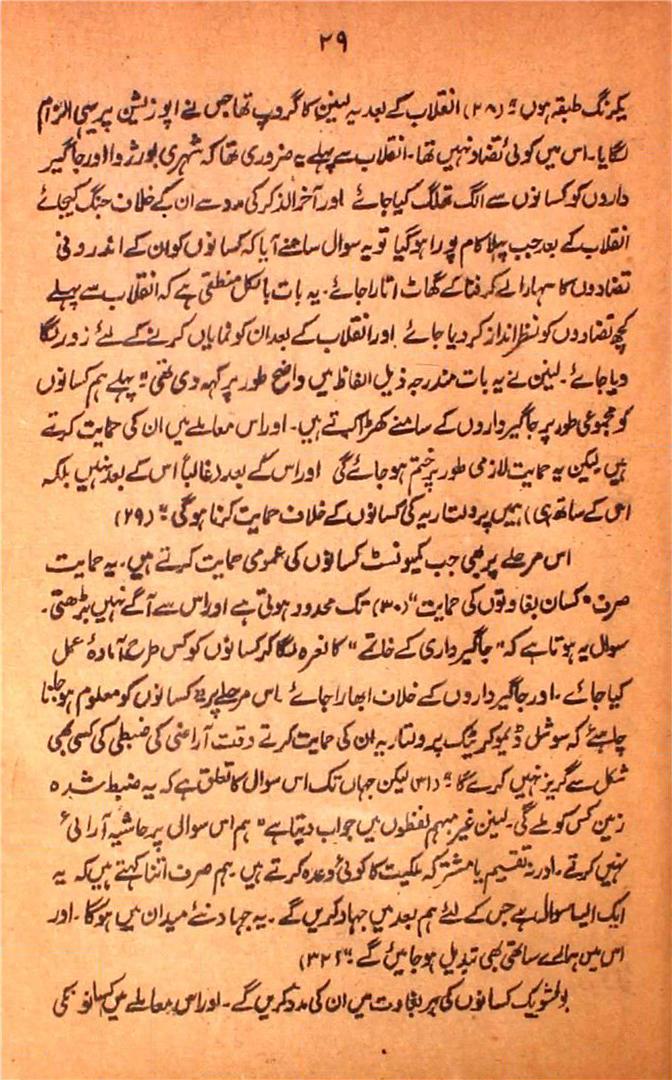 ۲۹
یکرنگ طبقہ ہوں" (۲۸) انقلاب کے بعد یہ لینن کا گروپ تھا جس نے اپوزیشن پر یہی الزام
لگایا۔ اس میں کوئی تضاد نہیں تھا۔ انقلاب سے پہلے یہ ضروری تھا کہ شہری بورژوا اور جاگیر
داروں کو کسانوں سے الگ تھلگ کیا جائے اور آخرالذکر کی مدد سے ان کے خلاف جنگ کیجائے
انقلاب کے بعد جب پہلا کام پورا ہو گیا تو یہ سوال سامنے آیا کہ کسانوں کو ان کے اندرونی
تضادوں کا سہارا لے کر فنا کے گھاٹ اتارا جائے۔ یہ بات بالکل منطقی ہے کہ انقلاب سے پہلے
کچھ تضادوں کو نظر انداز کر دیا جائے اور انقلاب کے بعد ان کو نمایاں کرنے کے لئے زور لگا
دیا جائے۔ لینن نے یہ بات مندرجہ ذیل الفاظ میں واضح طور پر کہہ دی تھی "پہلے ہم کسانوں
کو مجموعی طور پر جاگیرداروں کے سامنے کھڑا کرتے ہیں۔ اور اس معاملے میں ان کی حمایت کرتے
ہیں لیکن یہ حمایت لازمی طور پر ختم ہو جائے گی اور اس کے بعد (غالباً اس کے بعد نہیں بلکہ
اس کے ساتھ ہی) ہمیں پرولتاریہ کی کسانوں کے خلاف حمایت کرنا ہو گی" (۲۹)
اس مرحلے پر بھی جب کمیونسٹ کسانوں کی عمومی حمایت کرتے ہیں۔ یہ حمایت
صرف "کسان بغاوتوں کی حمایت" (۳۰) تک محدود ہوتی ہے اور اس سے آگے نہیں بڑھتی۔
سوال یہ ہوتا ہے کہ "جاگیرداری کے خاتمے" کا نعرہ لگا کر کسانوں کو کس طرح آمادۂ عمل
کیا جائے۔ اور جاگیرداروں کے خلاف ابھارا جائے اس مرحلے پر "کسانوں کو معلوم ہو جانا
چاہئے کہ سوشل ڈیموکریٹک پرولتاریہ ان کی حمایت کرتے وقت آراضی کی ضبطی کی کسی بھی
شکل سے گریز نہیں کرے گا" (۳۱) لیکن جہاں تک اس سوال کا تعلق ہے کہ یہ ضبط شدہ
زمین کس کو ملے گی۔ لینن غیر مبہم لفظوں میں جواب دیتا ہے "ہم اس سوال پر حاشیہ آرائی
نہیں کرتے۔ اور نہ تقسیم یا مشترکہ ملکیت کا کوئی وعدہ کرتے ہیں۔ ہم صرف اتنا کہتے ہیں کہ یہ
ایک ایسا سوال ہے جس کے لئے ہم بعد میں جہاد کریں گے۔ یہ جہاد نئے میدان میں ہو گا۔ اور
اس میں ہمارے ساتھی بھی تبدیل ہو جائیں گے" (۳۲)
بولشویک کسانوں کی ہر بغاوت میں ان کی مدد کریں گے۔ اور اس معاملے میں کسانوں کی